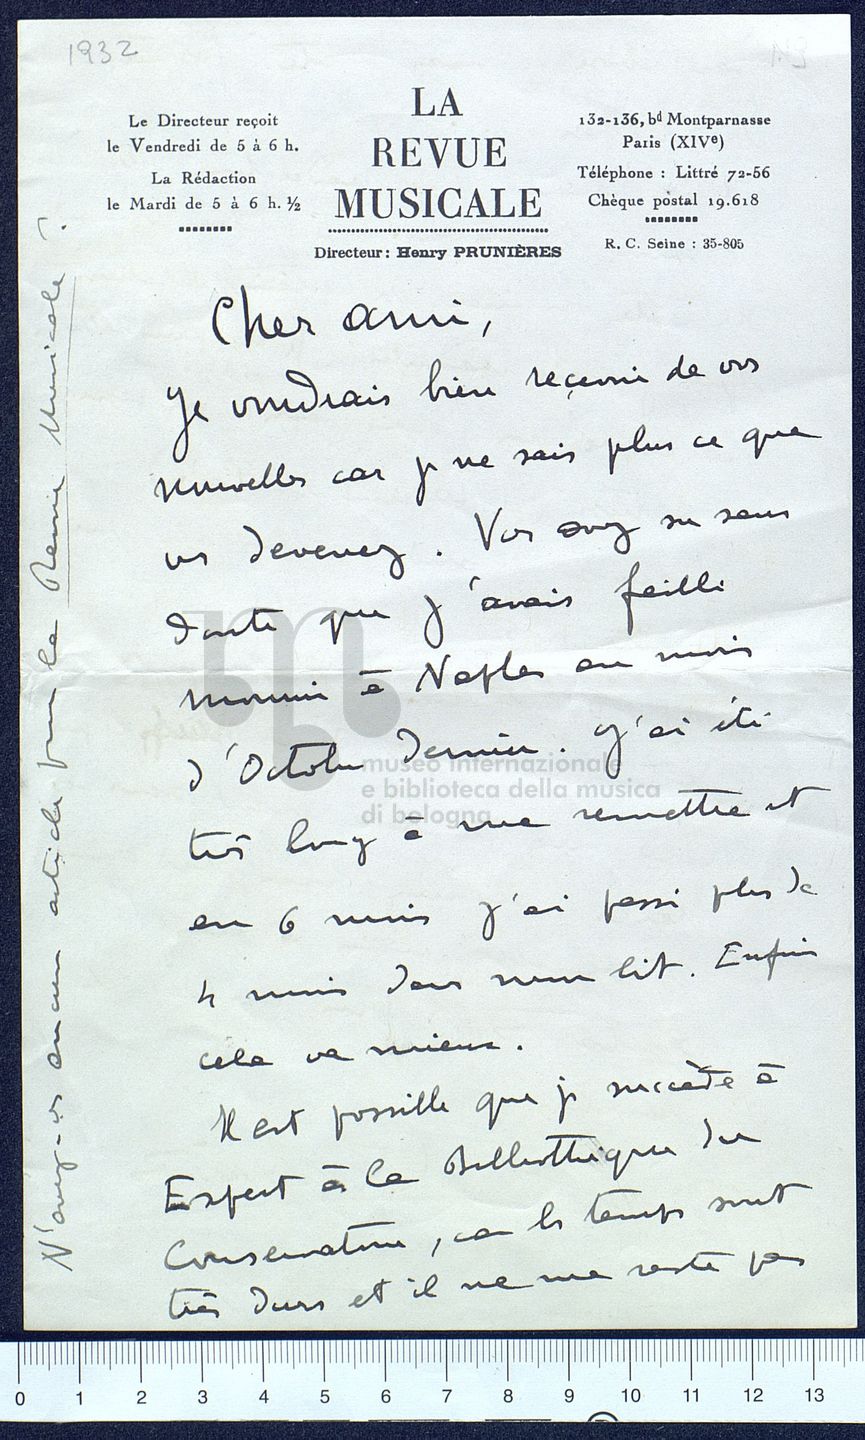 1932
Le Directeur reçoit
le Vendredi de 5 à 6 h.
La Rédaction
le Mardi de 5 à 6 h. ½
LA
REVUE
MUSICALE
Directeur : Henry PRUNIÈRES
132-136, bd Montparnasse
Paris (XIVe)
Téléphone : Littré 72-56
Chèque postal 19.618
R. C. Seine : 35-805
Cher ami,
Je voudrais bien recevoir de vos
nouvelles car je ne sais plus ce que
vs devenez. Vos avez su sans
doute que j'avais failli
mourir à Naples au mois
d'Octobre dernier. J'ai été
très long à me remettre et
en 6 mois j'ai passé plus de
4 mois dans mon lit. Enfin
cela va mieux.
Il est possible que je succède à
Expert à la Bibliothèque du
Conservatoire, car les temps sont
très durs et il ne me reste pas
N'avez-vs aucun article pour la Revue Musicale ?
museo internazionale
e biblioteca della musica
di bologna
0 1 2 3 4 5 6 7 8 9 10 11 12 13